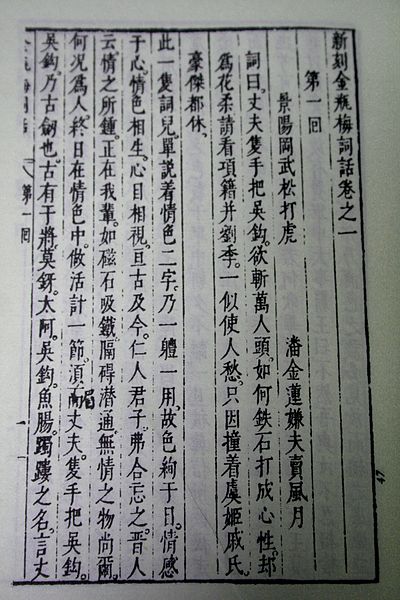 新刻金瓶梅詞話卷之一
第一回
景陽岡武松打虎 潘金蓮嫌夫賣風月
詞曰。丈夫隻手把吳鈎。欲斬萬人頭。如何鉄石打成心性。却
爲花柔。請看項籍并劉季。一似使人愁。只因撞着虞姬戚氏。
豪傑都休。
此一隻詞兒。單說着情色二字。乃一體一用。故色絢于目。情感
于心。情色相生。心目相視。亘古及今。仁人君子。弗合忘之。晋人
云。情之所鍾。正在我輩。如磁石吸鐵。隔碍潜通。無情之物尚爾。
何況爲人。終日在情色中。做活計一節。須而丈夫隻手把吳鈎。
吳鈎。乃古劒也。古有干將。莫鋣。太阿。吳鈎。魚腸。躅之名。言丈
第一回
47